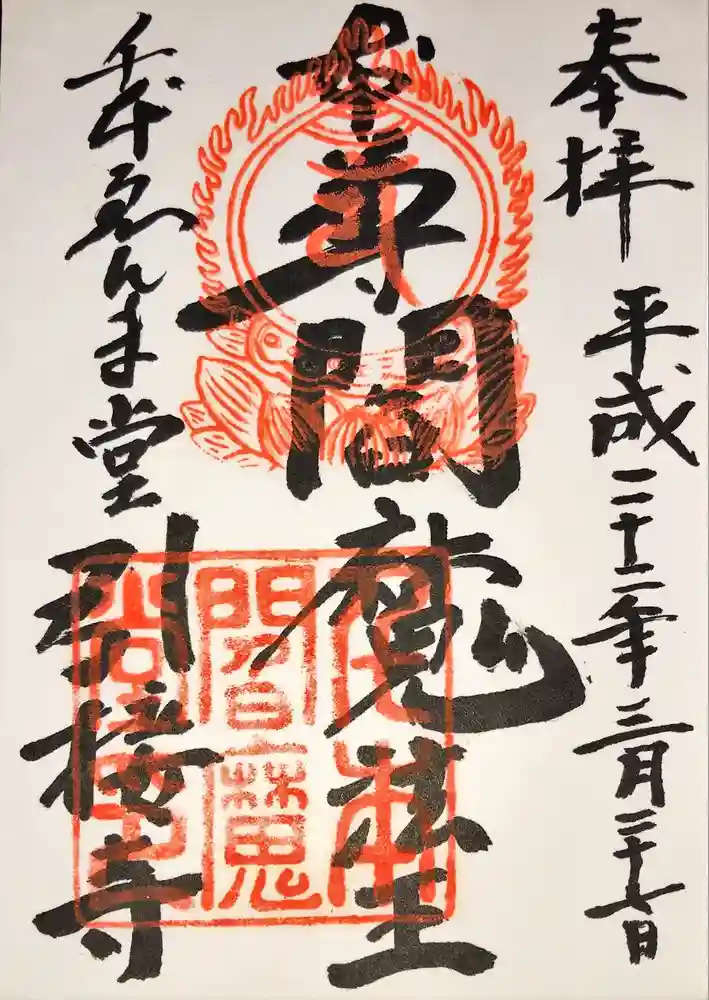 奉拝 平成二十二年三月二十七日
本尊 閻魔法王
千本ゑんま堂 引接寺
閻魔